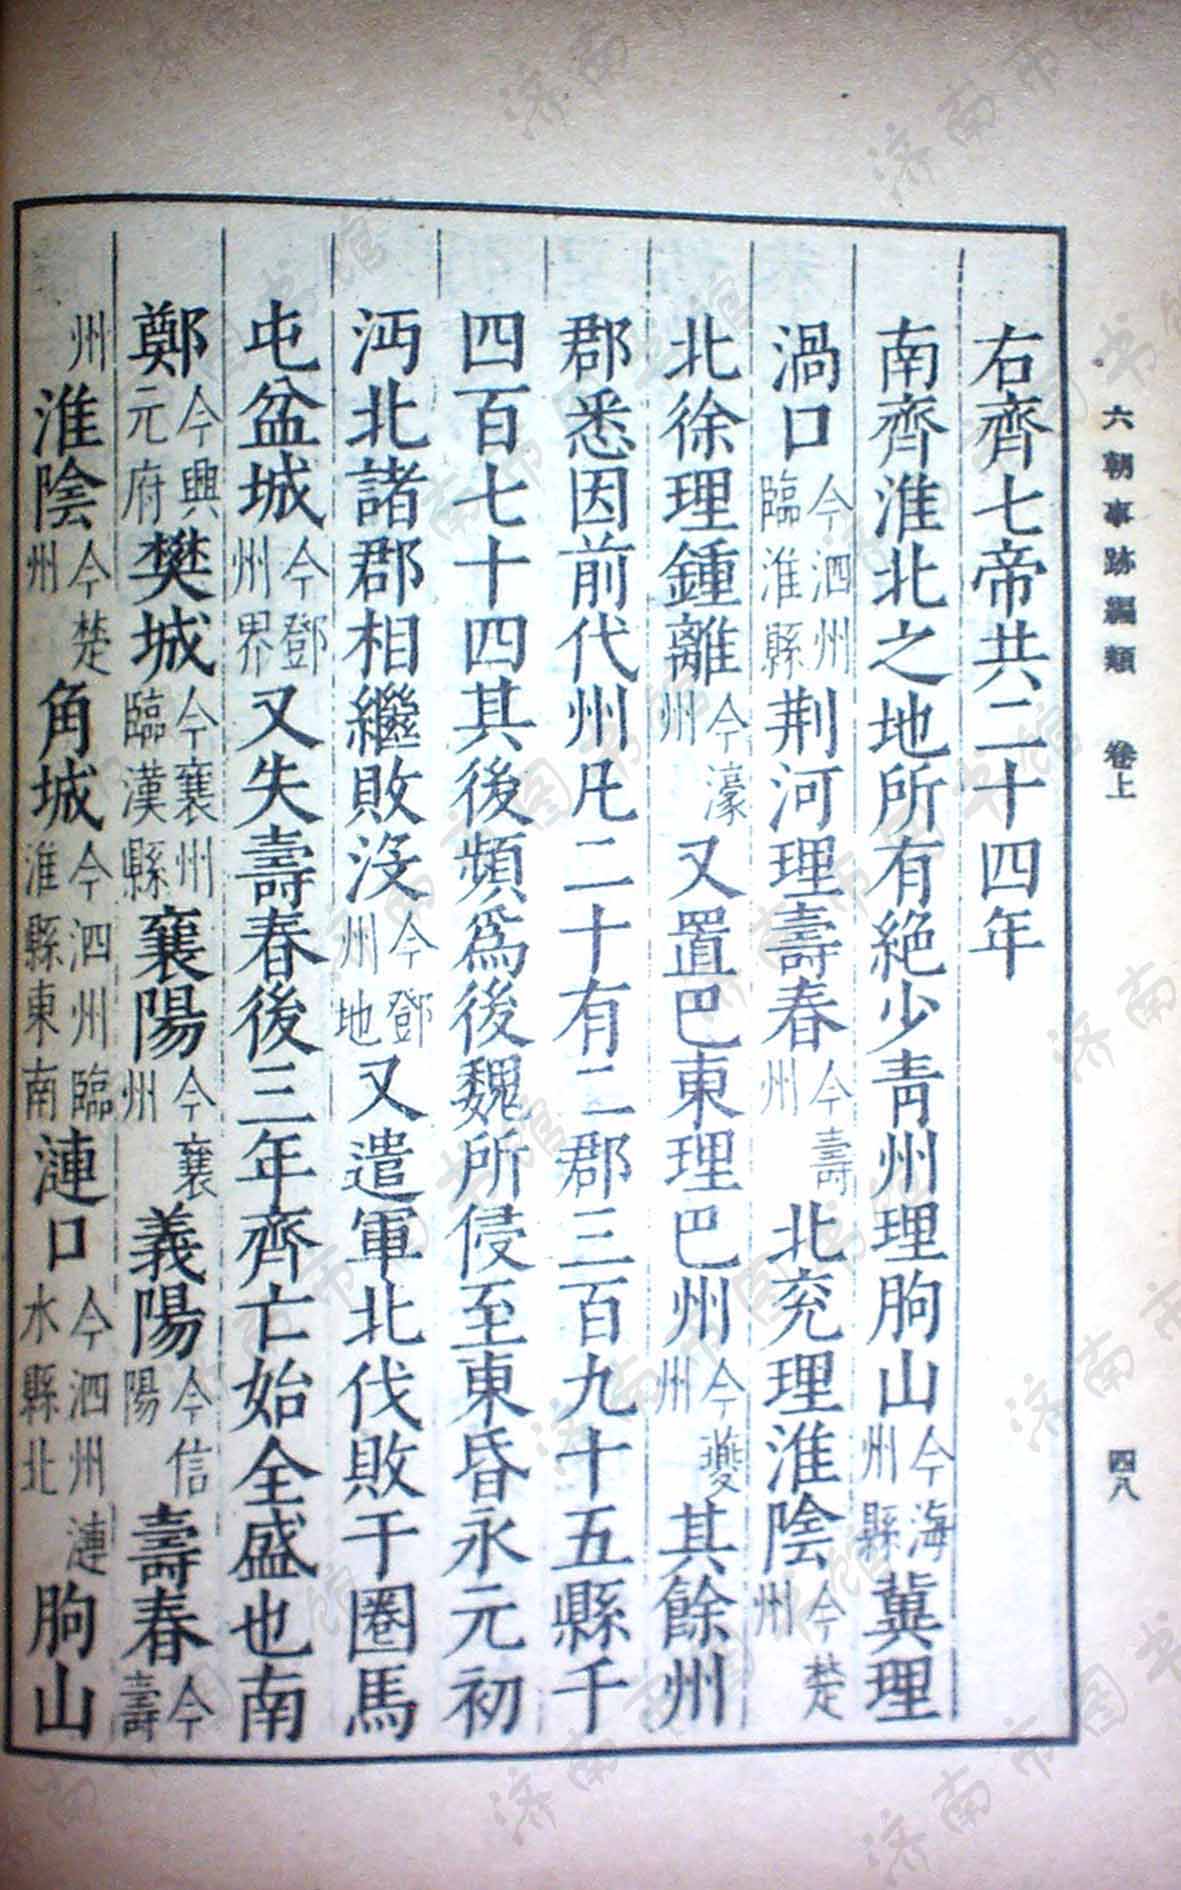 六朝事跡編類　卷上
四八
右齊七帝共二十四年
南齊淮北之地所有絕少靑州理朐山今海州縣冀理
渦口今泗州臨淮縣荆河理壽春今壽州北兖理淮陰今楚州
北徐理鍾離今濠州又置巴東理巴州今夔州其餘州
郡悉因前代州凡二十有二郡三百九十五縣千
四百七十四其後頻爲後魏所侵至東昏永元初
沔北諸郡相繼敗沒今鄧州地又遣軍北伐敗于圈馬
屯盆城今鄧州界又失壽春後三年齊亡始全盛也南
鄭今興元府樊城今襄州臨漢縣襄陽今襄州義陽今信陽壽春今壽
州淮陰今楚州角城今泗州臨淮縣東南漣口今泗州漣水縣北朐山